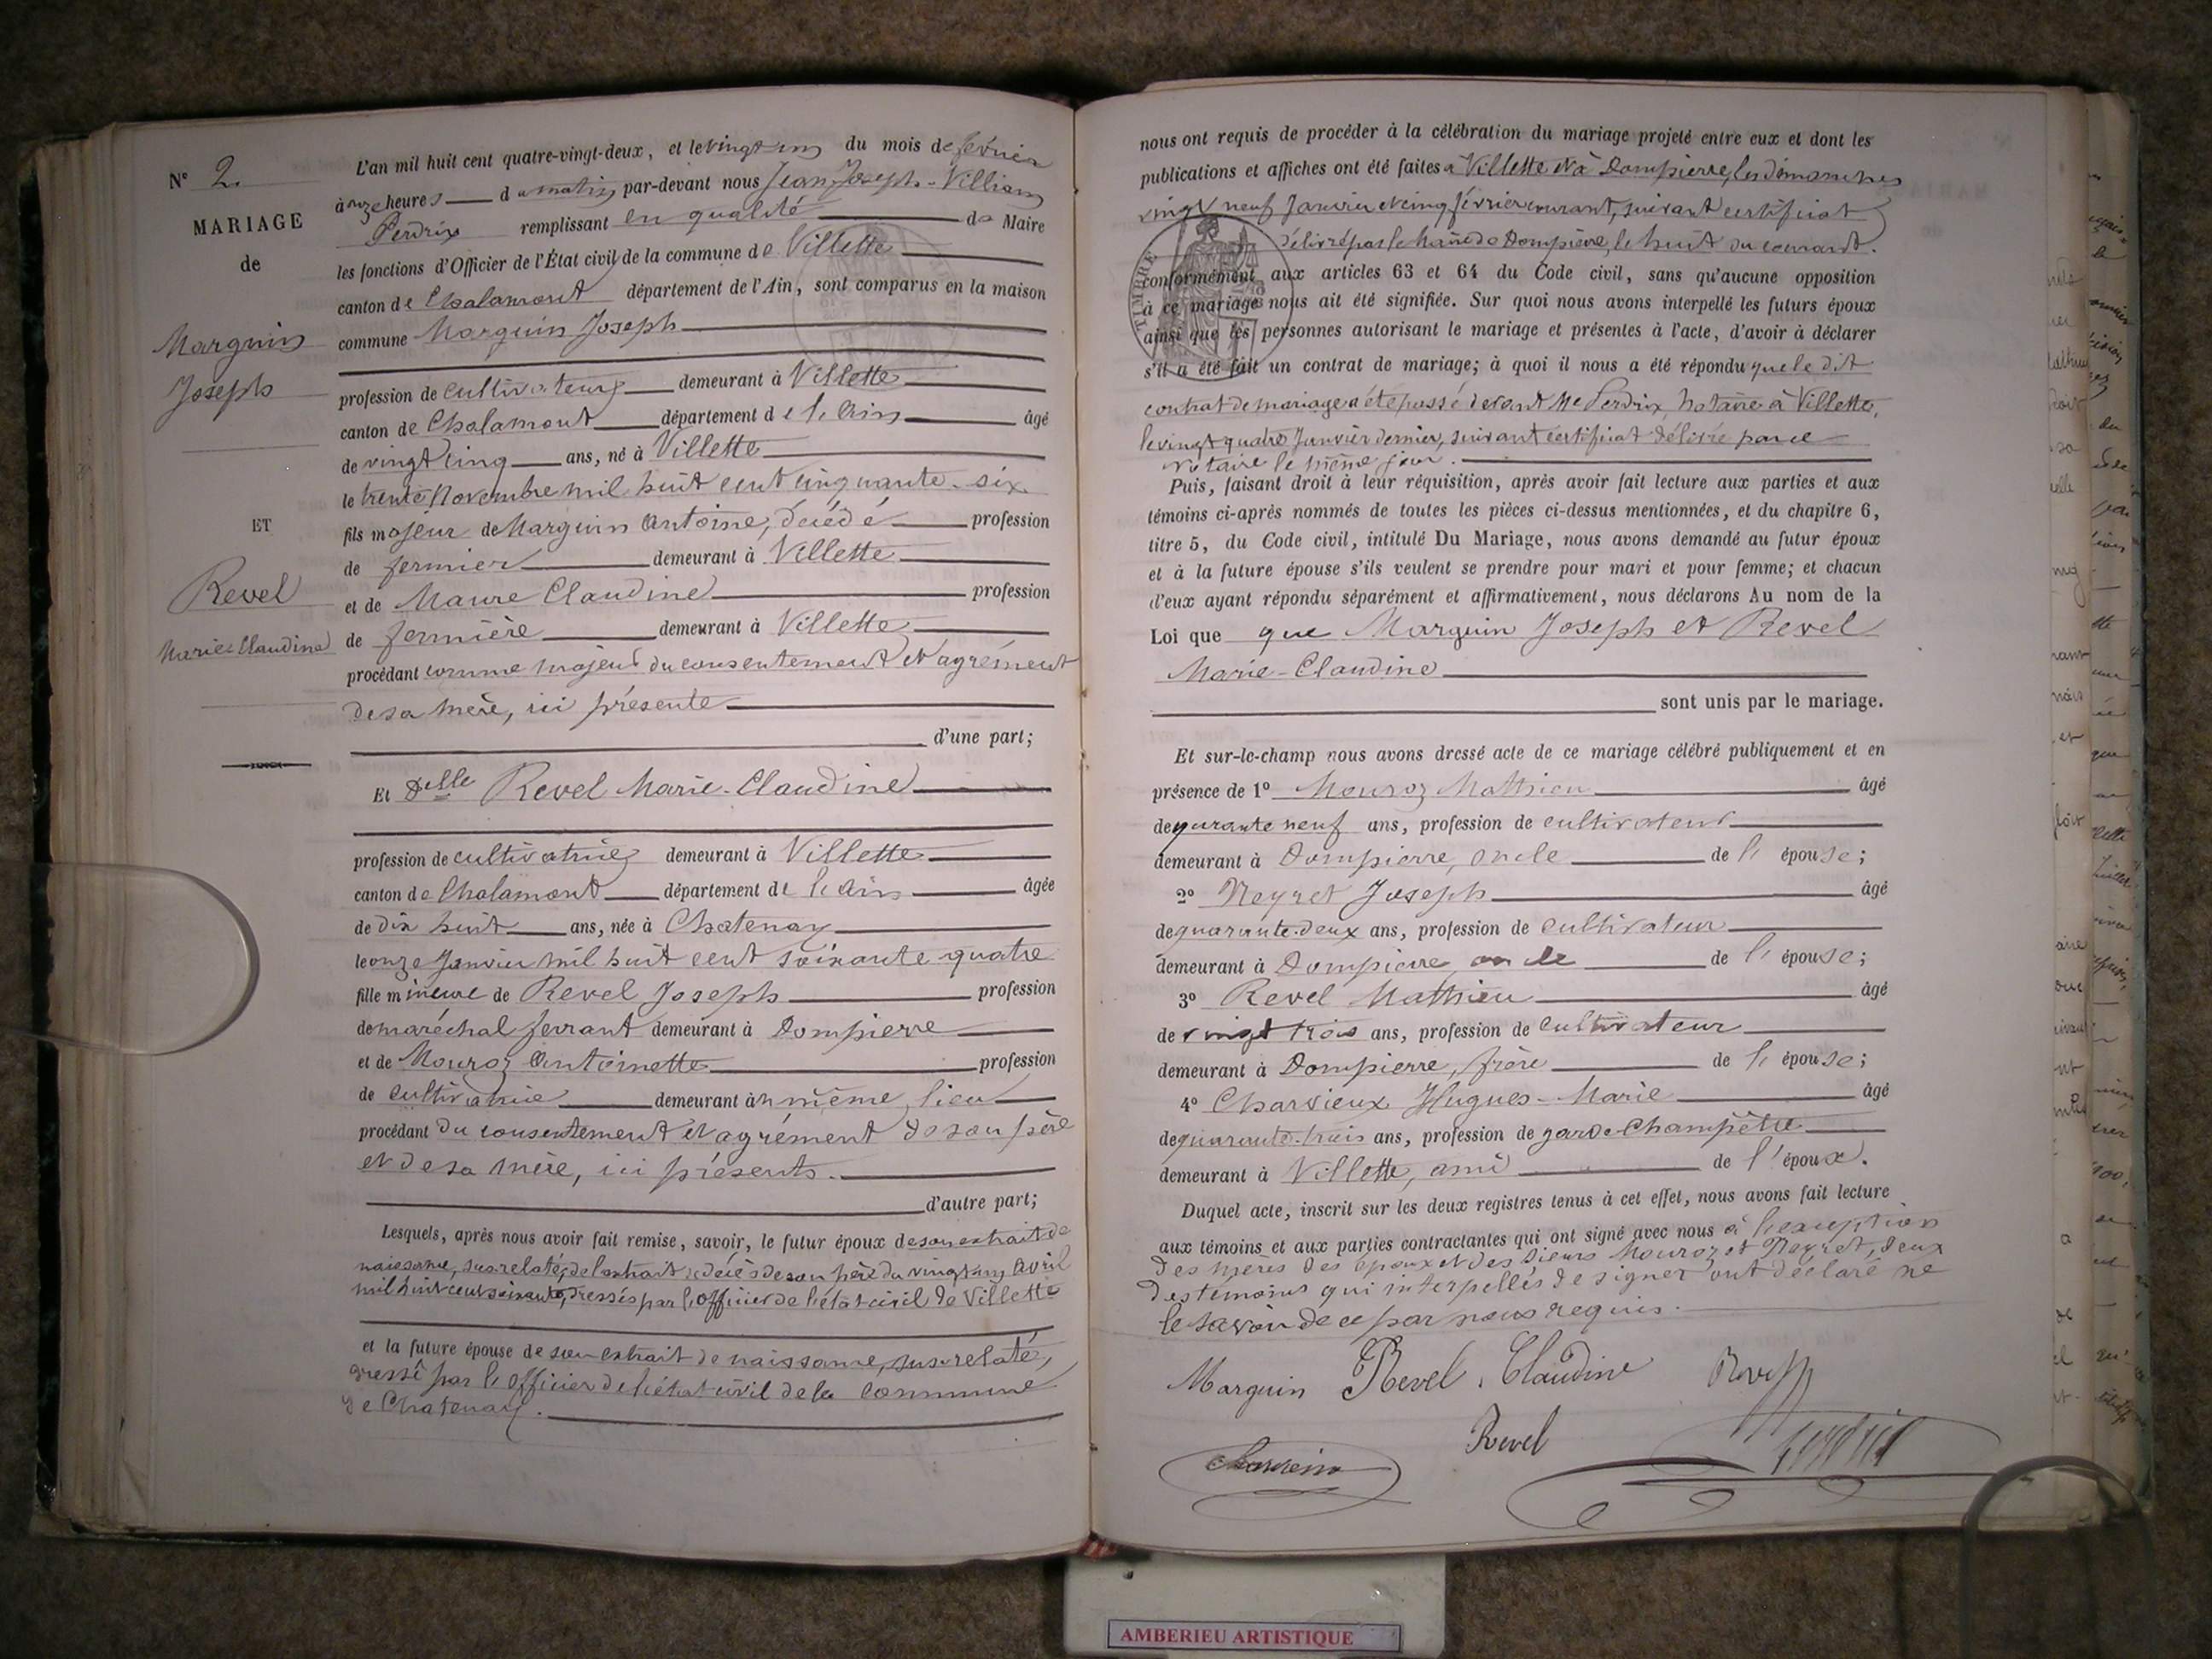 N° 2.
MARIAGE
de
Marguin
Joseph
ET
Revel
Marie-Claudine
L'an mil huit cent quatre-vingt-deux, et le vingt un du mois de février
à onze heures du matin par-devant nous Jean Joseph-William
Perdrix remplissant en qualité de Maire
les fonctions d'Officier de l'État civil de la commune de Villette
canton de Chalamont département de l'Ain, sont comparus en la maison
commune Marguin Joseph
profession de cultivateur demeurant à Villette
canton de Chalamont département de l'Ain âgé
de vingt cinq ans, né à Villette
le trente Novembre mil huit cent cinquante-six
fils majeur de Marguin Antoine, décédé profession
de fermier demeurant à Villette
et de Maure Claudine profession
de fermière demeurant à Villette
procédant comme majeur du consentement et agrément
de sa mère, ici présente
d'une part;
Et Delle Revel Marie-Claudine
profession de cultivatrice demeurant à Villette
canton de Chalamont département de l'Ain âgée
de dix huit ans, née à Chatenay
le onze Janvier mil huit cent soixante-quatre
fille mineure de Revel Joseph profession
de maréchal ferrant demeurant à Dompierre
et de Mouroz Antoinette profession
de cultivatrice demeurant à même lieu
procédant du consentement et agrément de son père
et de sa mère, ici présents.
d'autre part;
Lesquels, après nous avoir fait remise, savoir, le futur époux de son extrait de
naissance, susrelaté, de l'extrait de décès de son père du vingt cinq Avril
mil huit cent soixante, dressés par l'Officier de l'état civil de Villette
et la future épouse de son extrait de naissance, susrelaté,
dressé par l'Officier de l'état civil de la commune
de Chatenay.
nous ont requis de procéder à la célébration du mariage projeté entre eux et dont les
publications et affiches ont été faites à Villette et à Dompierre, les dimanches
vingt neuf Janvier et cinq février courant, suivant certificat
délivré par le Maire de Dompierre, le huit du courant.
TIMBRE
conformément aux articles 63 et 64 du Code civil, sans qu'aucune opposition
à ce mariage nous ait été signifiée. Sur quoi nous avons interpellé les futurs époux
ainsi que les personnes autorisant le mariage et présentes à l'acte, d'avoir à déclarer
s'il a été fait un contrat de mariage; à quoi il nous a été répondu que le dit
contrat de mariage a été passé devant Me Perdrix, Notaire à Villette,
le vingt quatre Janvier dernier, suivant certificat délivré par ce
notaire le même jour.
Puis, faisant droit à leur réquisition, après avoir fait lecture aux parties et aux
témoins ci-après nommés de toutes les pièces ci-dessus mentionnées, et du chapitre 6,
titre 5, du Code civil, intitulé Du Mariage, nous avons demandé au futur époux
et à la future épouse s'ils veulent se prendre pour mari et pour femme; et chacun
d'eux ayant répondu séparément et affirmativement, nous déclarons Au nom de la
Loi que que Marguin Joseph et Revel
Marie-Claudine
sont unis par le mariage.
Et sur-le-champ nous avons dressé acte de ce mariage célébré publiquement et en
présence de 1° Mouroz Mathieu âgé
de quarante neuf ans, profession de cultivateur
demeurant à Dompierre, oncle de l'épouse;
2° Neyret Joseph âgé
de quarante-deux ans, profession de cultivateur
demeurant à Dompierre oncle de l'épouse;
3° Revel Mathieu âgé
de vingt trois ans, profession de cultivateur
demeurant à Dompierre, frère de l'épouse;
4° Charvieux Hugues-Marie âgé
de quarante-trois ans, profession de garde-Champêtre
demeurant à Villette, ami de l'époux.
Duquel acte, inscrit sur les deux registres tenus à cet effet, nous avons fait lecture
aux témoins et aux parties contractantes qui ont signé avec nous à l'exception
des mères des époux et des sieurs Mouroz et Neyret, deux
des témoins qui interpellés de signer ont déclaré ne
le savoir de ce par nous requis.
Marguin Revel Claudine
Revel
AMBERIEU ARTISTIQUE